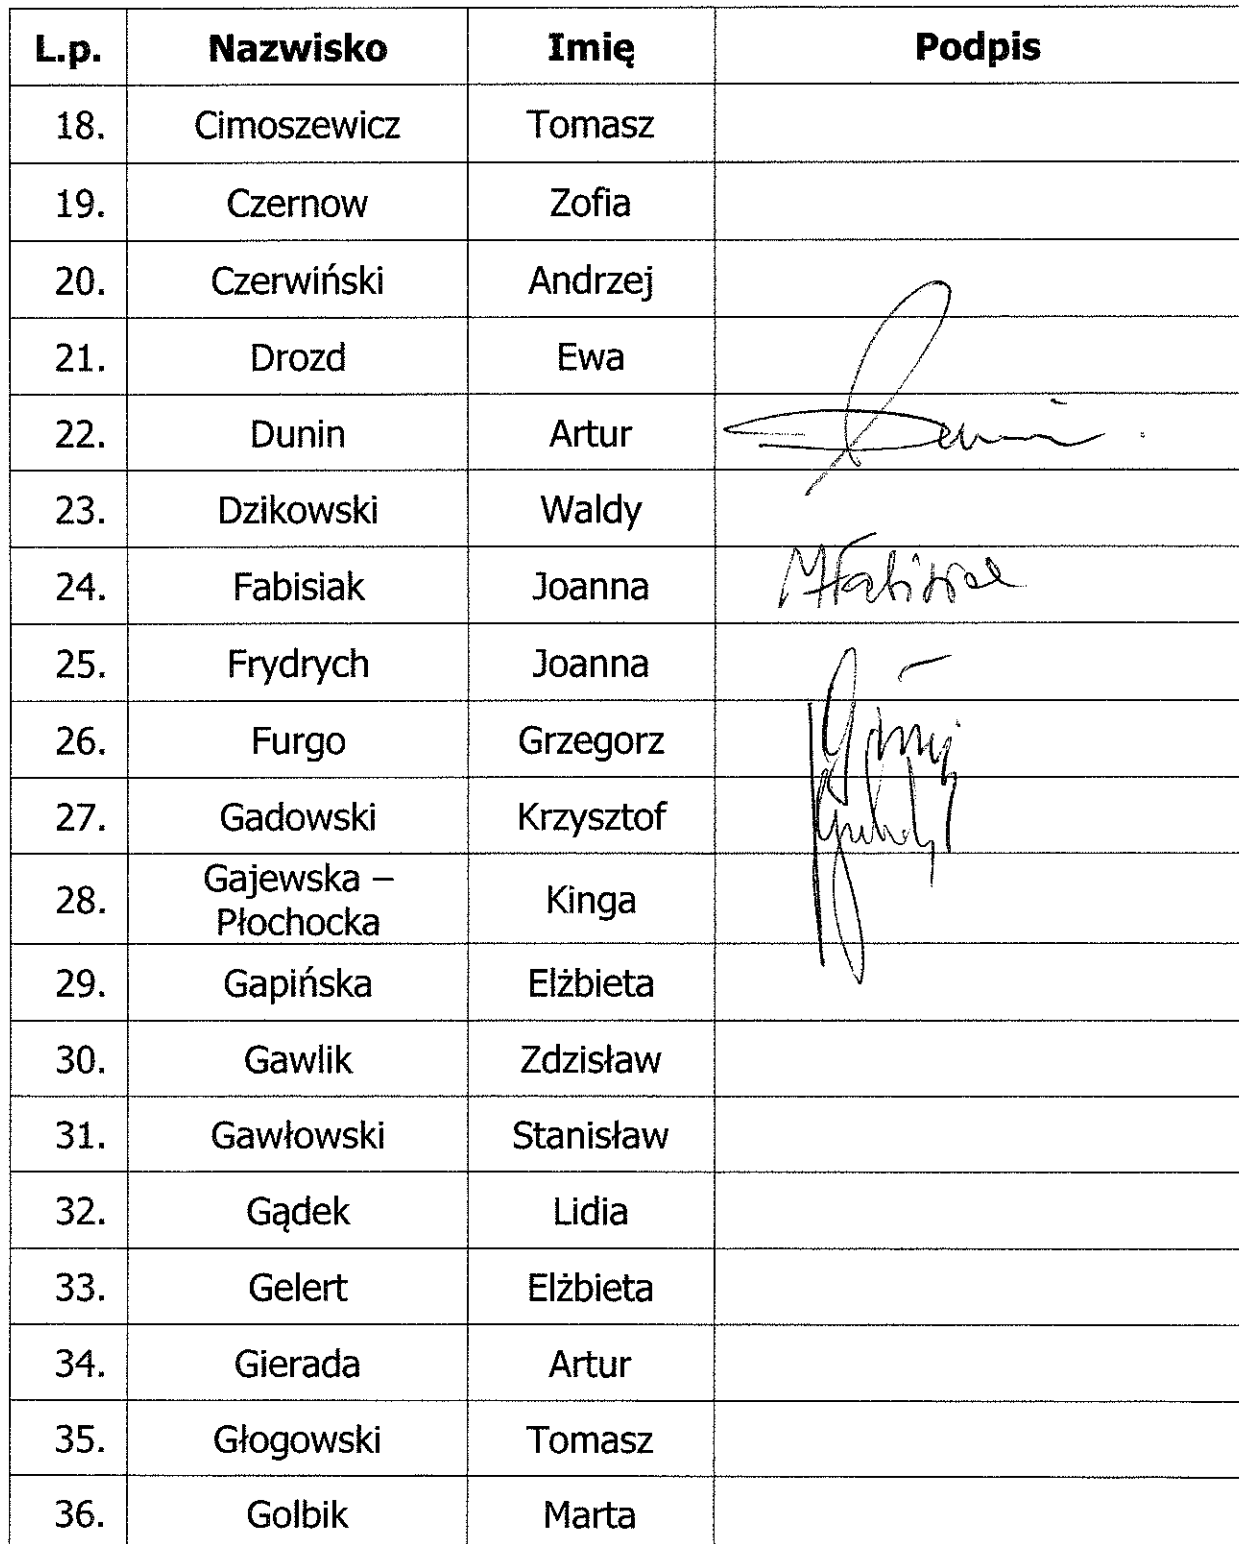 L.p. Nazwisko Imię Podpis
18. Cimoszewicz Tomasz
19. Czernow Zofia
20. Czerwiński Andrzej
21. Drozd Ewa
22. Dunin Artur
23. Dzikowski Waldy
24. Fabisiak Joanna
25. Frydrych Joanna
26. Furgo Grzegorz
27. Gadowski Krzysztof
28. Gajewska –
Płochocka Kinga
29. Gapińska Elżbieta
30. Gawlik Zdzisław
31. Gawłowski Stanisław
32. Gądek Lidia
33. Gelert Elżbieta
34. Gierada Artur
35. Głogowski Tomasz
36. Golbik Marta